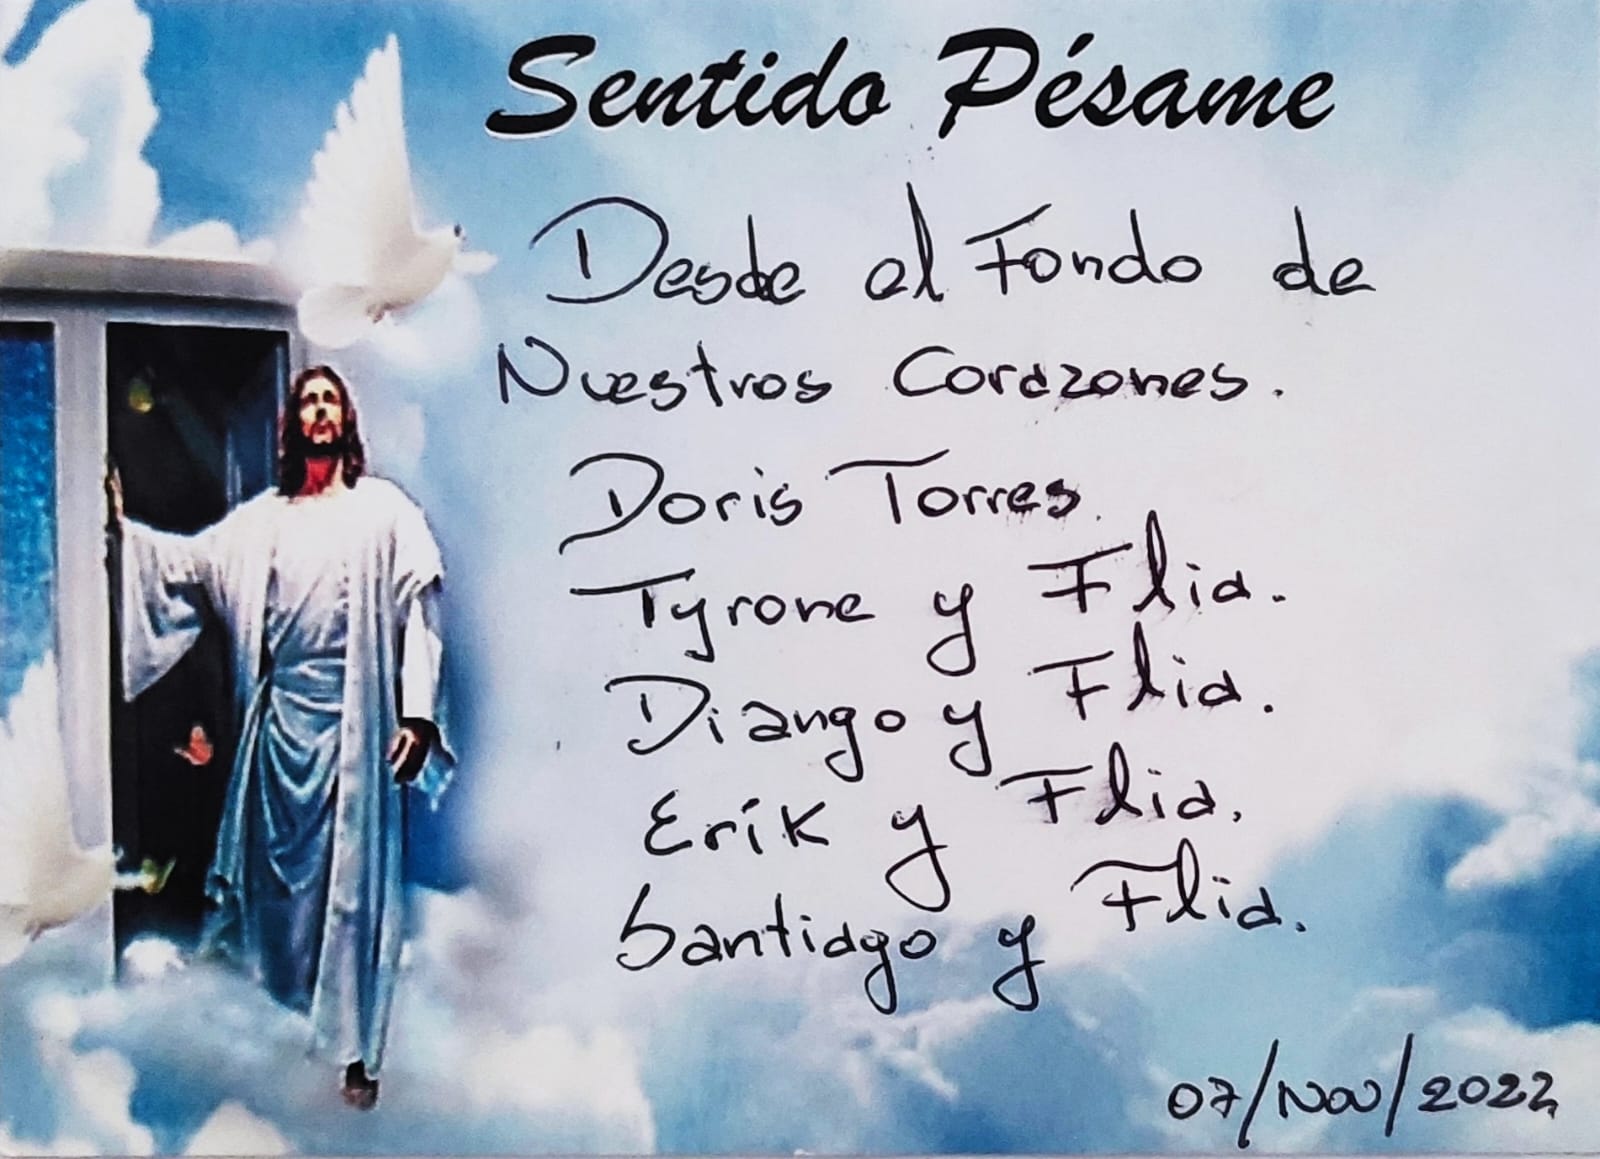 Sentido Pésame
Desde el Fondo de
Nuestros Corazones.
Doris Torres.
Tyrone y Flia.
Diango y Flia.
Erik y Flia.
Santiago y Flia.
07/Nov/2022